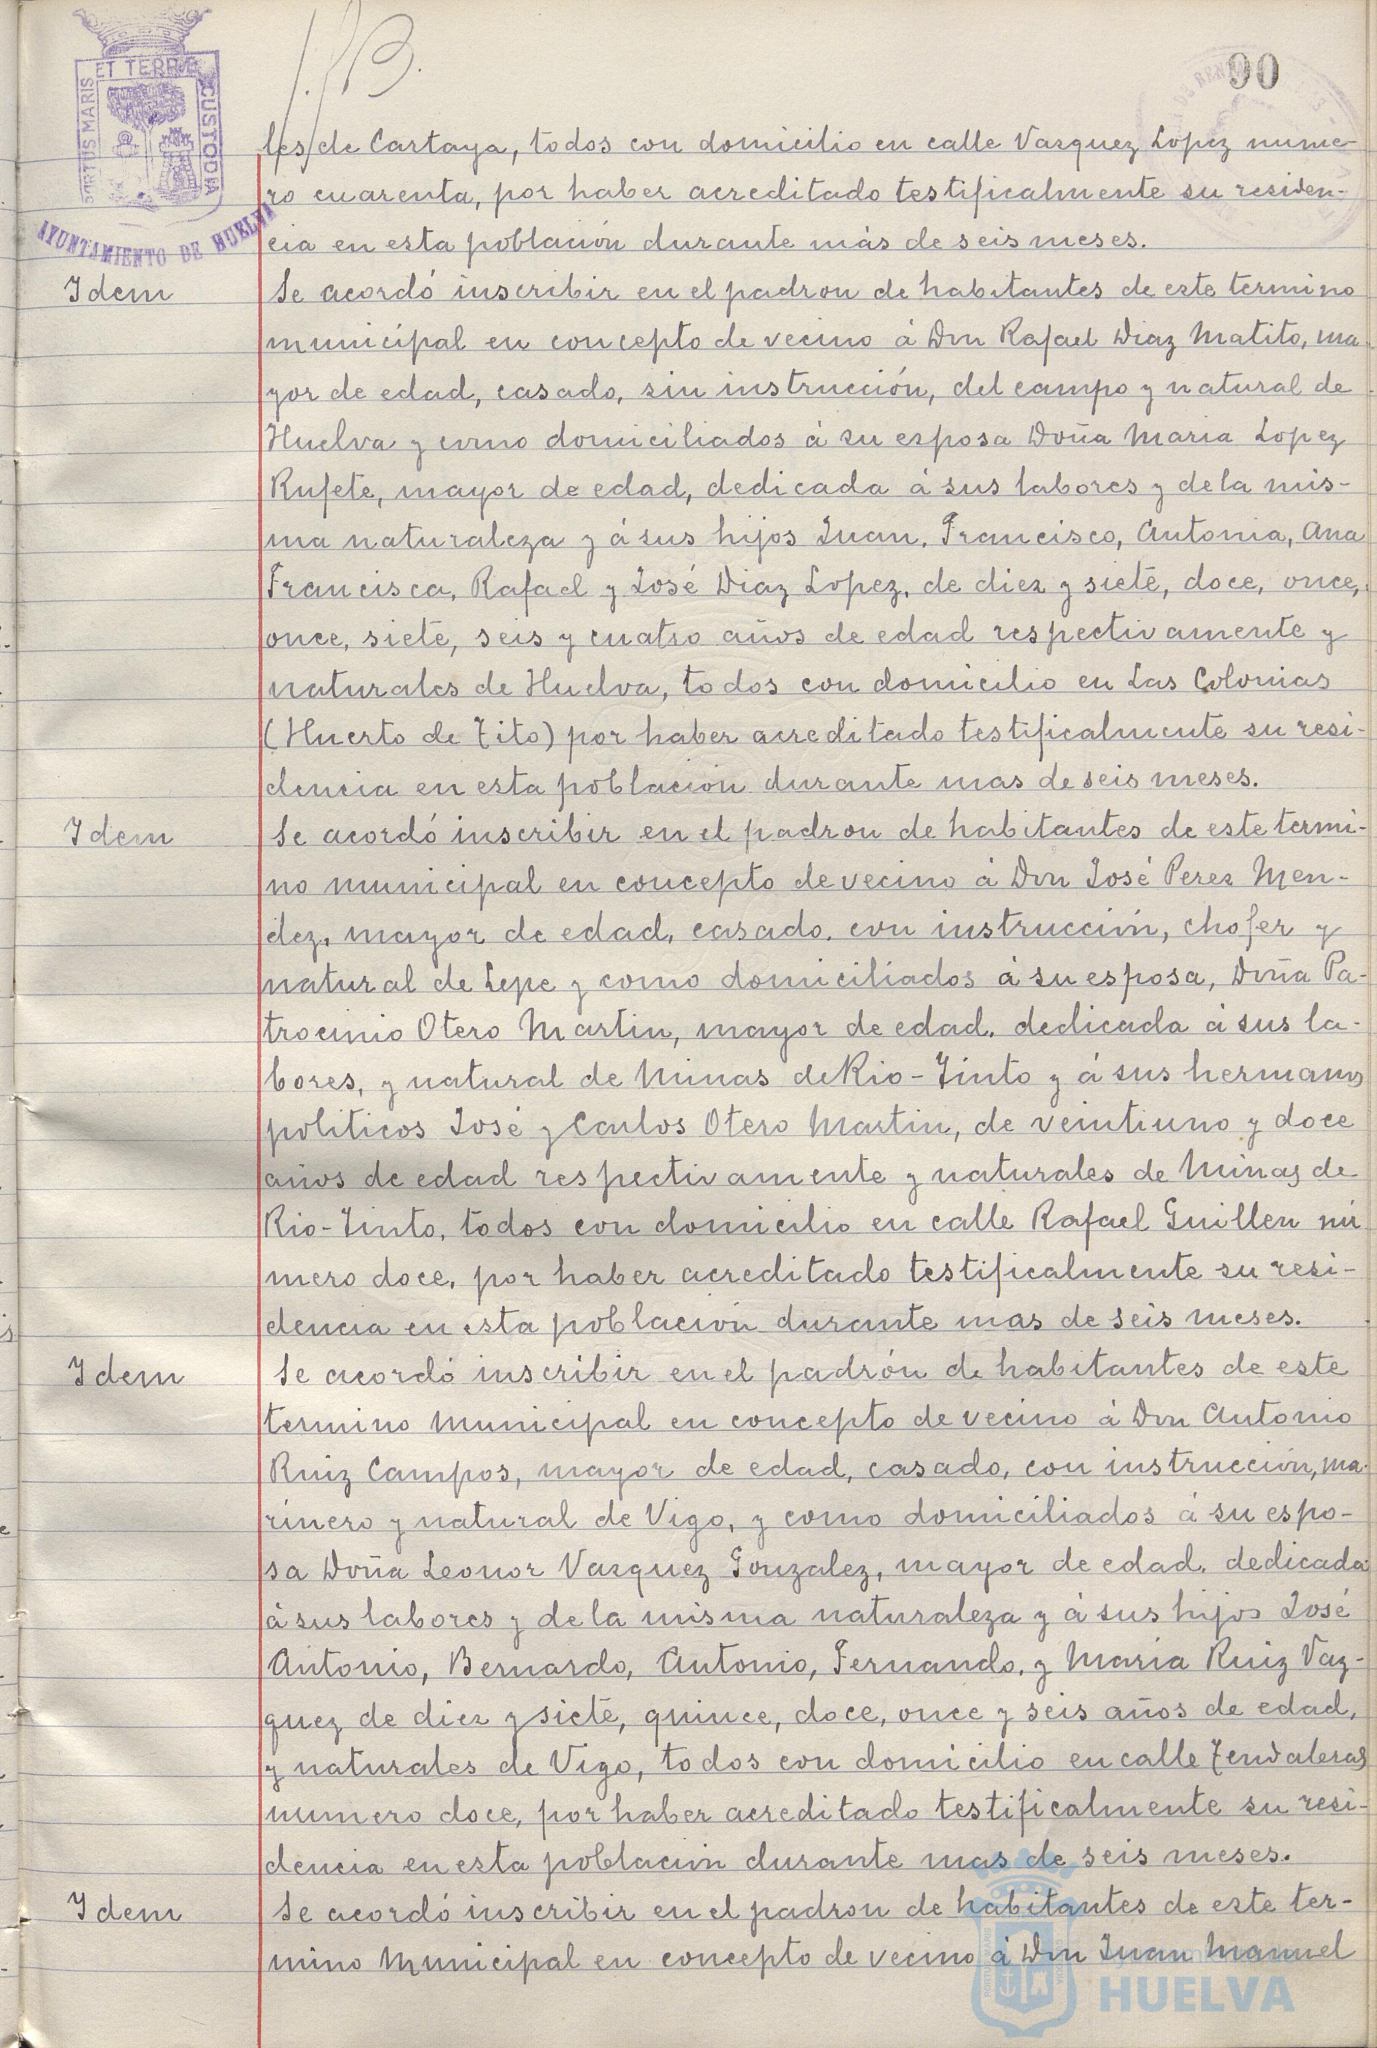 90
PORTUS MARIS ET TERRÆ CUSTODIA
AYUNTAMIENTO DE HUELVA
les de Cartaya, todos con domicilio en calle Vazquez Lopez nume-
ro cuarenta, por haber acreditado testificalmente su residen-
cia en esta población durante más de seis meses.
Idem
Se acordó inscribir en el padron de habitantes de este termino
municipal en concepto de vecino á Don Rafael Diaz Matito, ma
yor de edad, casado, sin instrucción, del campo y natural de
Huelva y como domiciliados á su esposa Doña Maria Lopez
Rufete, mayor de edad, dedicada á sus labores y de la mis-
ma naturaleza y á sus hijos Juan, Francisco, Antonia, Ana
Francisca, Rafael y José Diaz Lopez, de diez y siete, doce, once,
once, siete, seis y cuatro años de edad respectivamente y
naturales de Huelva, todos con domicilio en Las Colonias
(Huerto de Tito) por haber acreditado testificalmente su resi-
dencia en esta población durante mas de seis meses.
Idem
Se acordó inscribir en el padron de habitantes de este termi-
no municipal en concepto de vecino á Don José Perez Men-
dez, mayor de edad, casado, con instrucción, chofer y
natural de Lepe y como domiciliados á su esposa, Doña Pa-
trocinio Otero Martin, mayor de edad, dedicada á sus la-
bores, y natural de Minas de Rio-Tinto y á sus hermanos
politicos José y Carlos Otero Martin, de veintiuno y doce
años de edad respectivamente y naturales de Minas de
Rio-Tinto, todos con domicilio en calle Rafael Guillen nú
mero doce, por haber acreditado testificalmente su resi-
dencia en esta población durante mas de seis meses.
Idem
Se acordó inscribir en el padrón de habitantes de este
termino municipal en concepto de vecino á Don Antonio
Ruiz Campos, mayor de edad, casado, con instrucción, ma-
rinero y natural de Vigo, y como domiciliados á su espo-
sa Doña Leonor Vazquez Gonzalez, mayor de edad, dedicada
á sus labores y de la misma naturaleza y á sus hijos José
Antonio, Bernardo, Antonio, Fernando, y María Ruiz Vaz-
quez de diez y siete, quince, doce, once y seis años de edad,
y naturales de Vigo, todos con domicilio en calle Tendaleras
numero doce, por haber acreditado testificalmente su resi-
dencia en esta población durante mas de seis meses.
Idem
Se acordó inscribir en el padron de habitantes de este ter-
mino municipal en concepto de vecino á Don Juan Manuel
HUELVA